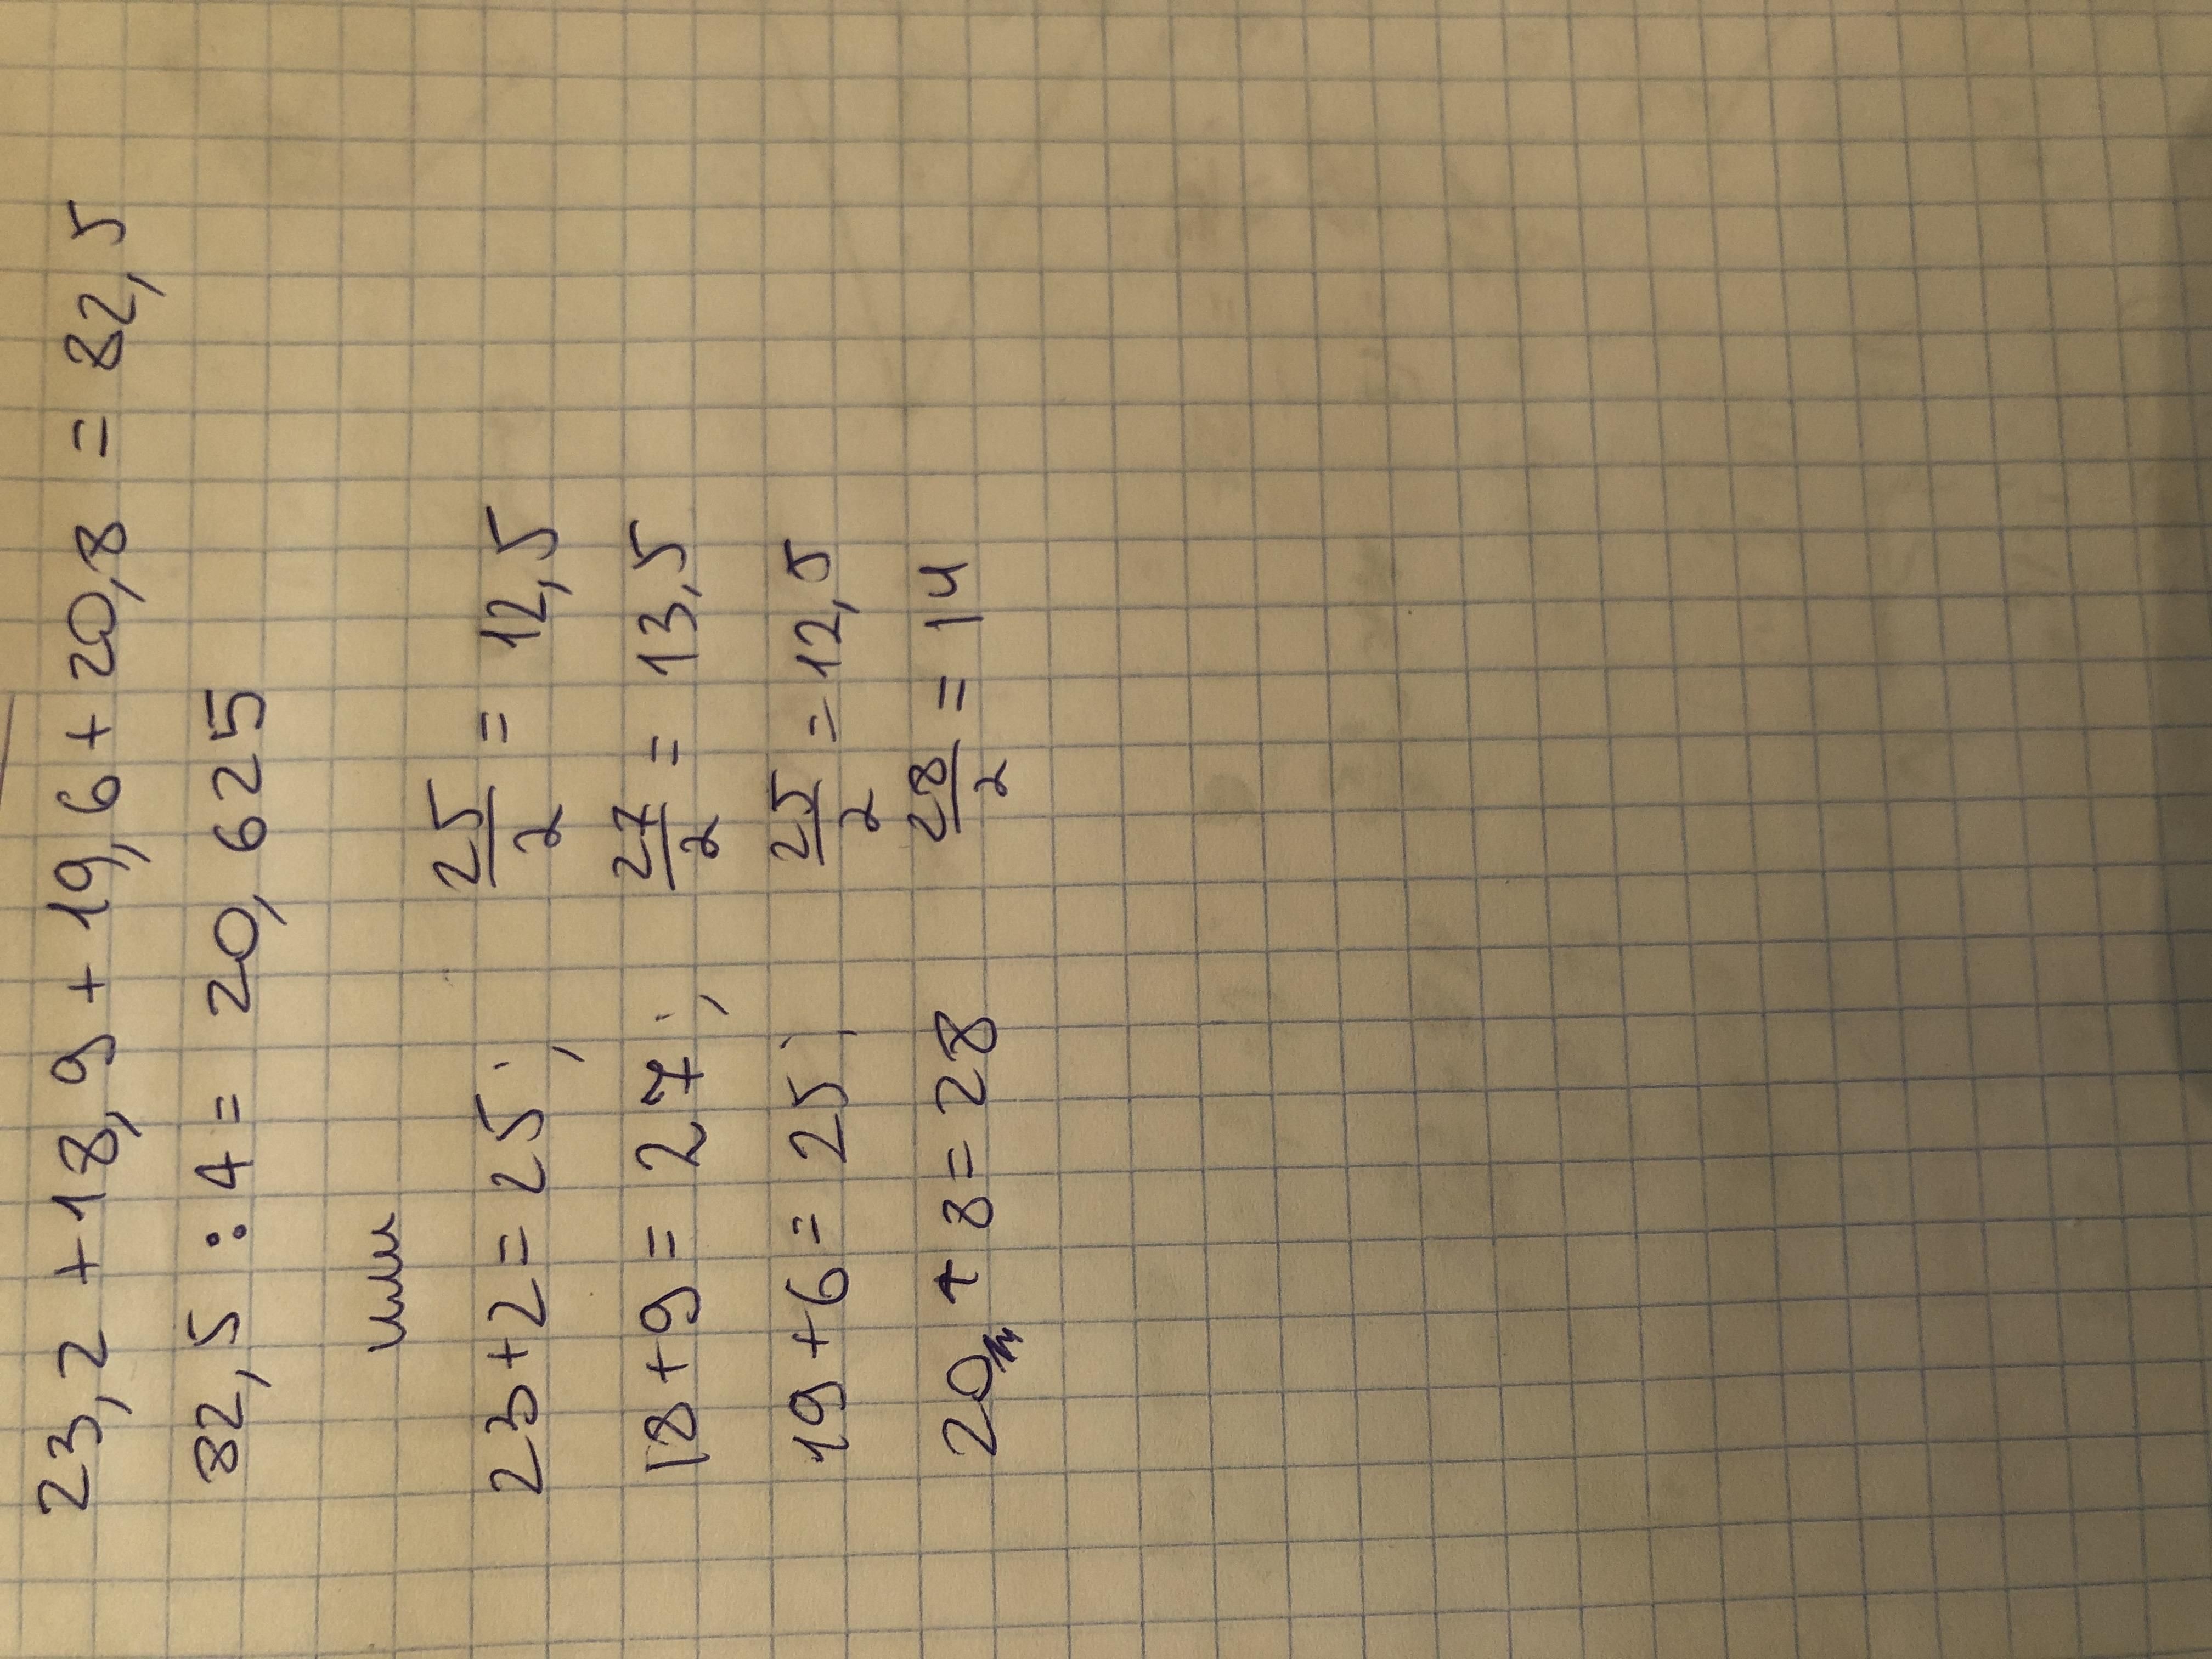 23,2 + 18,9 + 19,6 + 20,8 = 82,5
82,5 : 4 = 20,625
или
23 + 2 = 25 ; 25/2 = 12,5
18 + 9 = 27 ; 27/2 = 13,5
19 + 6 = 25 ; 25/2 = 12,5
20 + 8 = 28 28/2 = 14